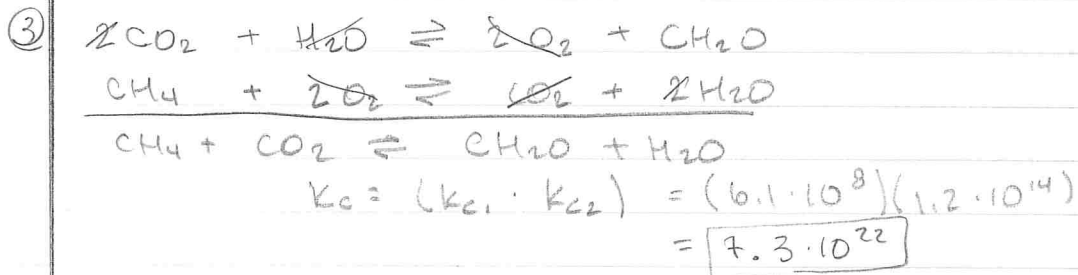 ③ 2CO₂ + H₂O ⇌ 2O₂ + CH₂O
CH₄ + 2O₂ ⇌ CO₂ + 2H₂O
CH₄ + CO₂ ⇌ CH₂O + H₂O
Kc = (Kc₁ · Kc₂) = (6.1·10⁸)(1.2·10¹⁴)
= 7.3·10²²